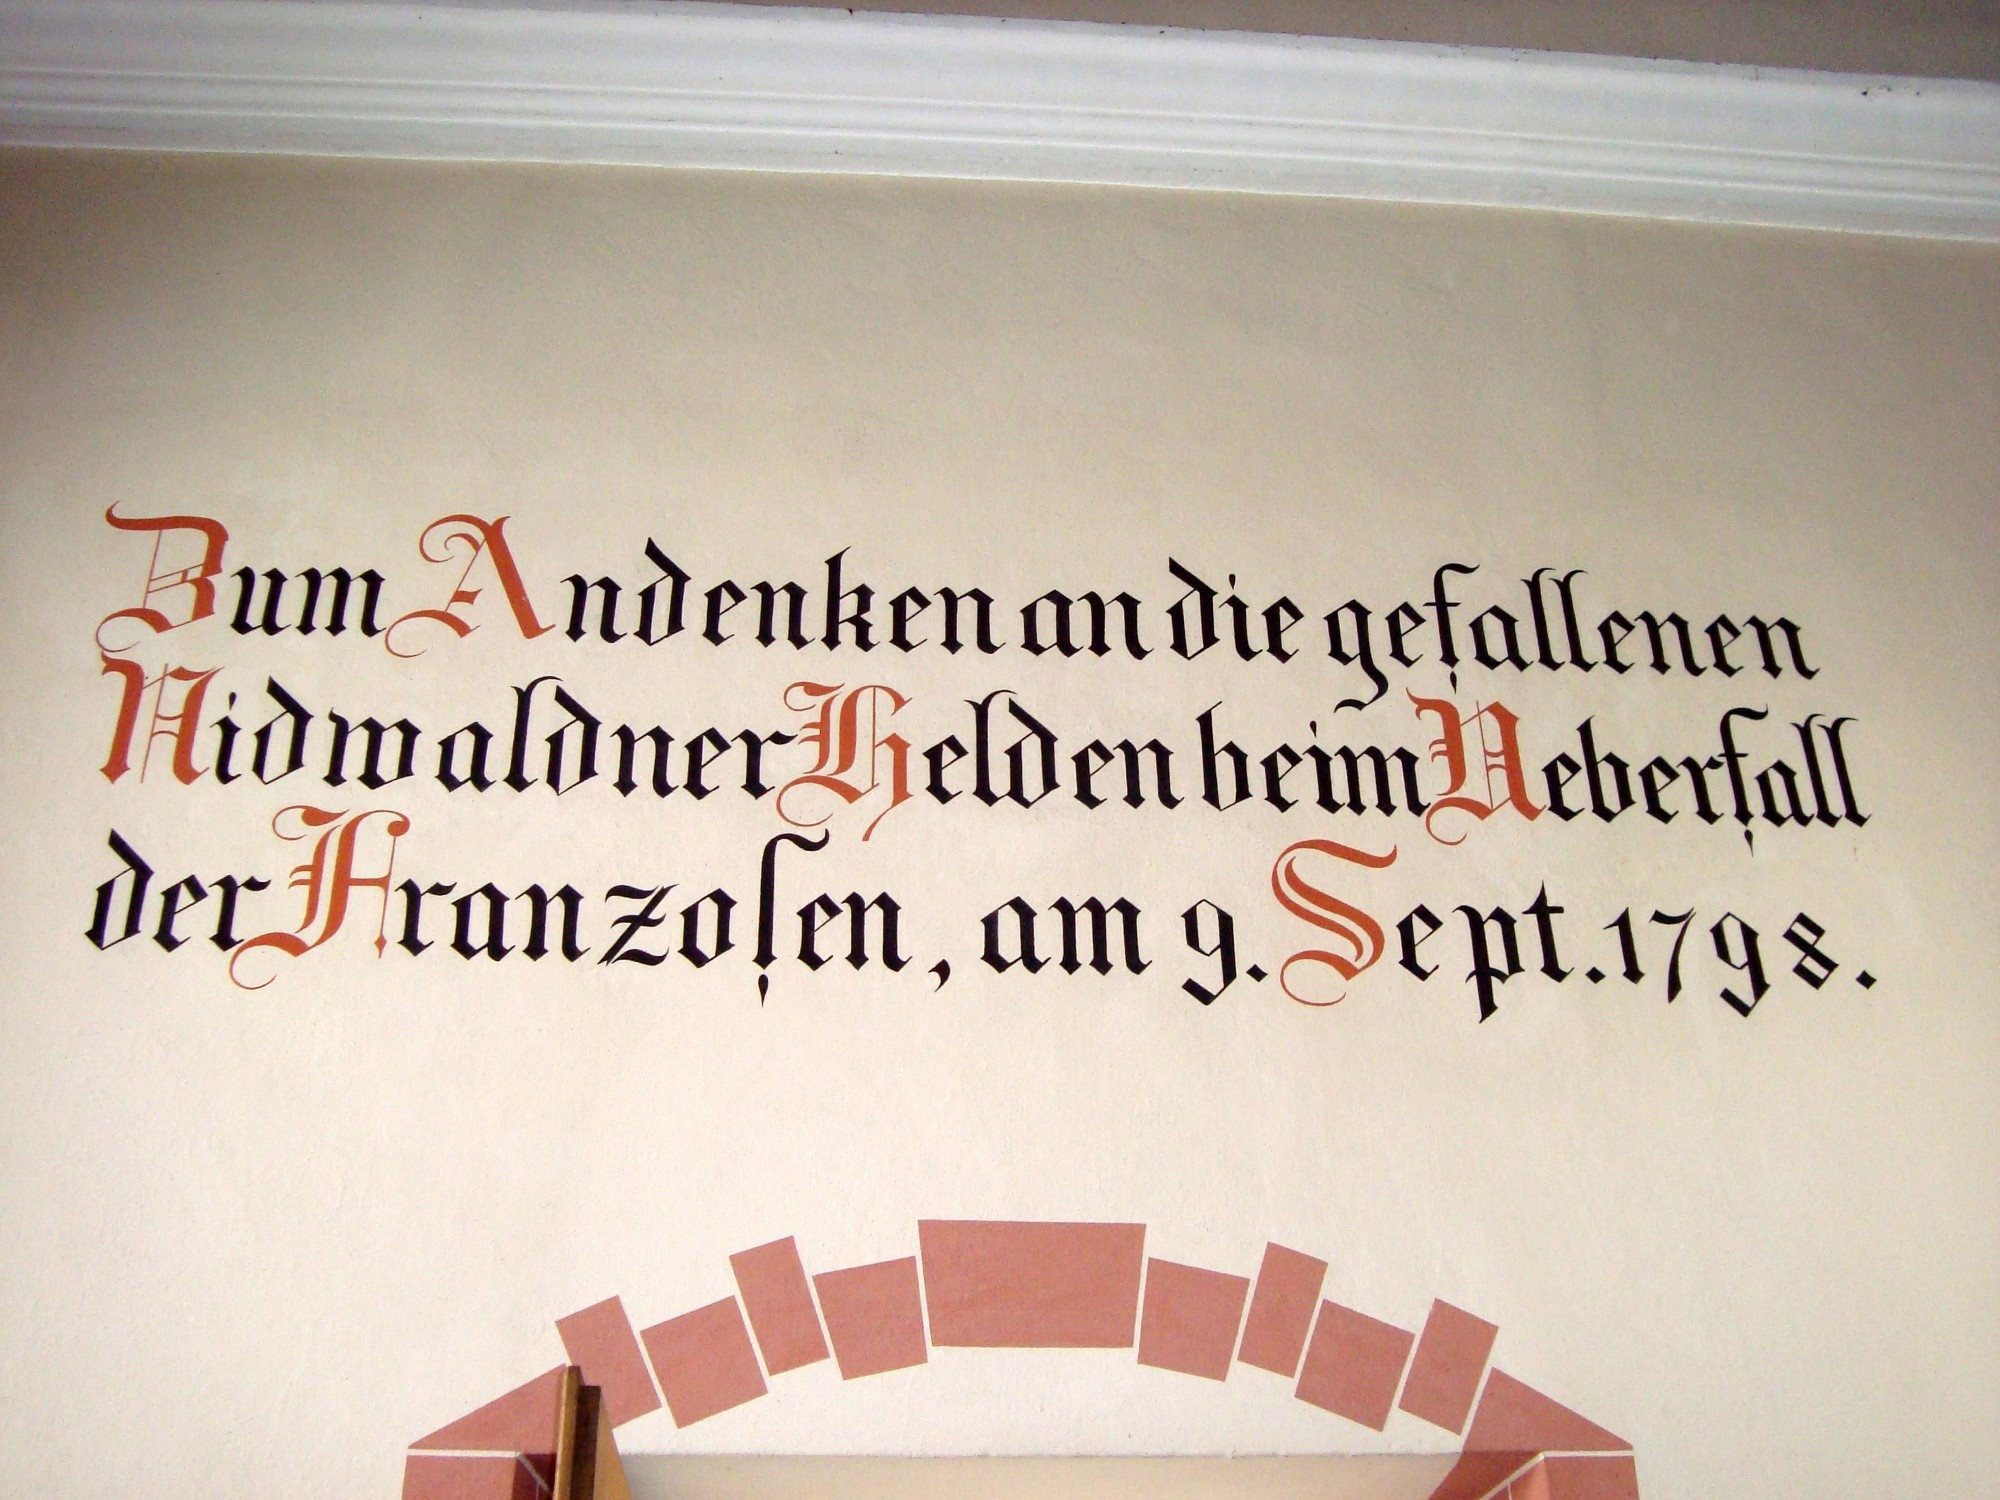 Zum Andenken an die gefallenen
Nidwaldner Helden beim Ueberfall
der Franzoſen, am 9. Sept. 1798.